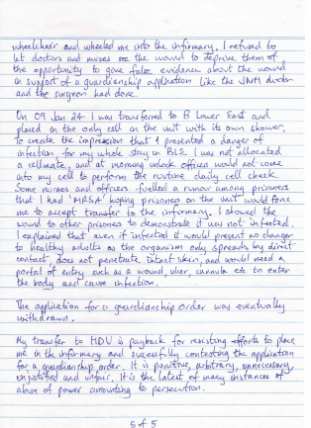 wheelchair and wheeled me into the infirmary. I refused to
let doctors and nurses see the wound to deprive them of
the opportunity to gave false evidence about the wound
in support of a guardianship application like the doctor
and the surgeon had done.
On 09 Jan 24 I was transferred to B Lower East and
placed in the only cell on the unit with its own shower,
to create the impression that I presented a danger of
infection for my whole stay on BLE. I was not allocated
a cellmate, and at morning unlock officers would not come
into my cell to perform the routine daily cell check.
Some nurses and officers fuelled a rumour among prisoners
that I had 'MRSA' hoping prisoners on the unit would force
me to accept transfer to the infirmary. I showed the
wound to other prisoners to demonstrate it was not infected.
I explained that even if infected it would present no danger
to healthy adults as the organism only spreads by direct
contact, does not penetrate intact skin, and would need a
portal of entry such as a wound, ulcer, cannula etc to enter
the body and cause infection.
The application for a guardianship order was eventually
withdrawn.
My transfer to HDU is payback for resisting efforts to place
me in the infirmary and sucessfully contesting the application
for a guardianship order. It is punitive, arbitrary, unnecessary,
unjustified and unfair. It is the latest of many instances of
abuse of power amounting to persecution.
5 of 5